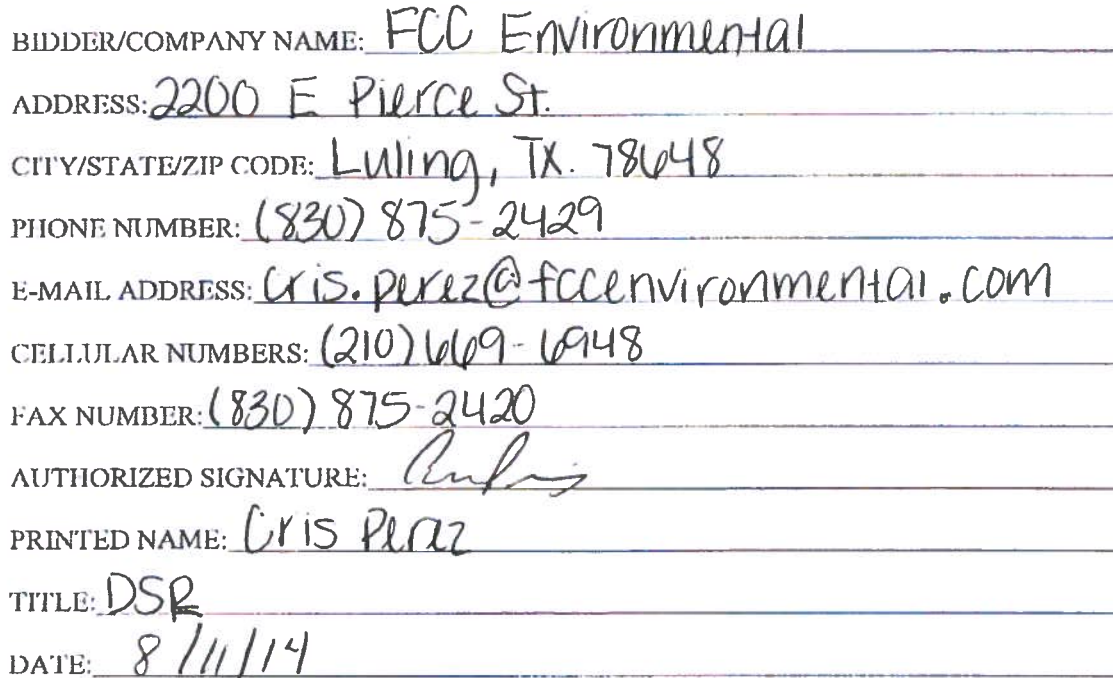 BIDDER/COMPANY NAME: FCC Environmental
ADDRESS: 2200 E Pierce St.
CITY/STATE/ZIP CODE: Luling, TX. 78648
PHONE NUMBER: (830) 875-2429
E-MAIL ADDRESS: Cris.perez@fccenvironmental.com
CELLULAR NUMBERS: (210) 669-6948
FAX NUMBER: (830) 875-2420
AUTHORIZED SIGNATURE:
PRINTED NAME: Cris Perez
TITLE: DSR
DATE: 8/11/14